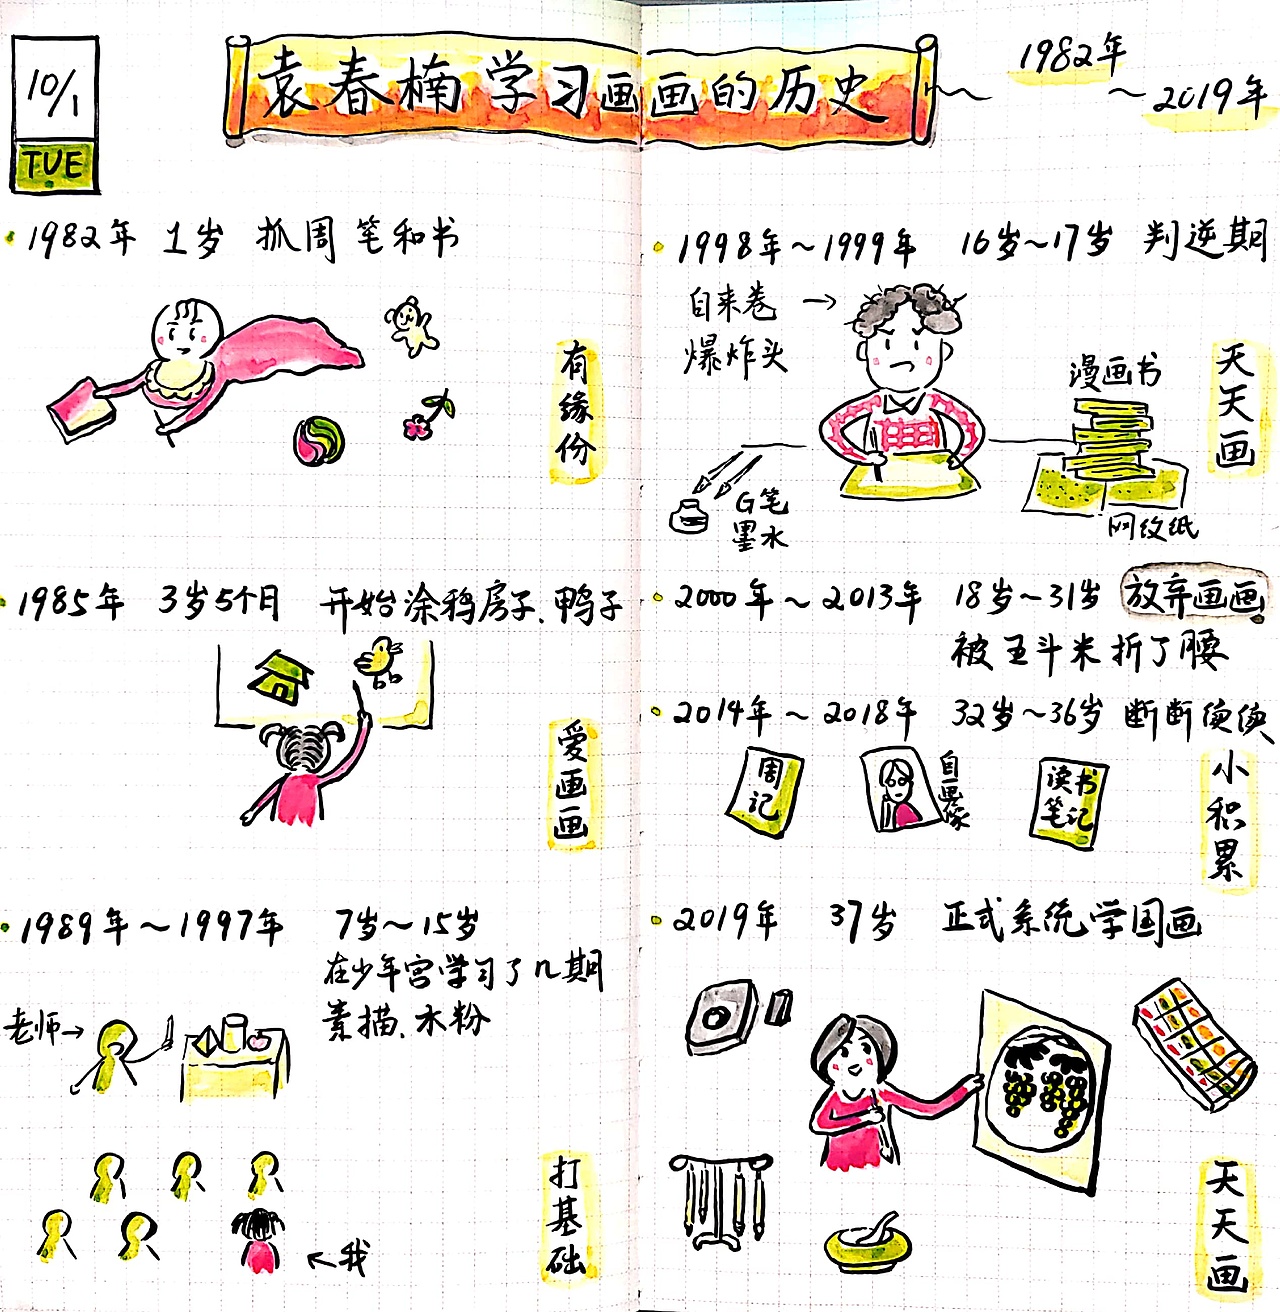 10/1
TUE
袁春楠学习画画的历史
1982年
~2019年
1982年 1岁 抓周笔和书
有缘份
1985年 3岁5个月 开始涂鸦房子、鸭子
爱画画
1989年~1997年 7岁~15岁
在少年宫学习了几期
素描、水粉
老师→
←我
打基础
1998年~1999年 16岁~17岁 判逆期
自来卷→
爆炸头
漫画书
G笔
墨水
网纹纸
天天画
2000年~2013年 18岁~31岁 放弃画画
被五斗米折了腰
2014年~2018年 32岁~36岁 断断续续
周记
自画像
读书
笔记
小积累
2019年 37岁 正式系统学国画
天天画